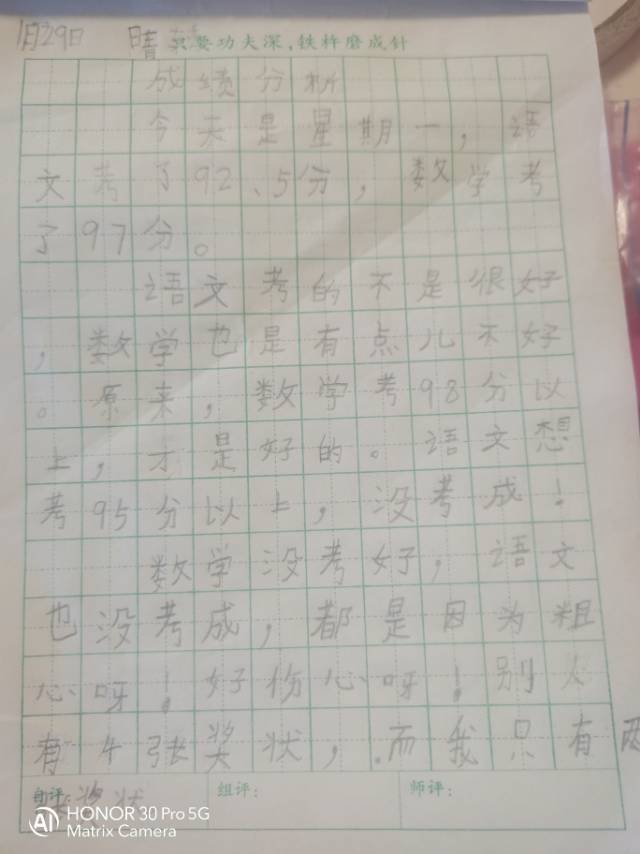 1月29日 晴 只要功夫深,铁杵磨成针
成绩分析
今天是星期一,语
文考了92、5分,数学考
了97分。
语文考的不是很好
,数学也是有点儿不好
。原来,数学考98分以
上,才是好的。语文想
考95分以上,没考成!
数学没考好,语文
也没考成,都是因为粗
心呀!好伤心呀!别人
有4张奖状,而我只有两
张奖状
自评: 组评: 师评:
AI HONOR 30 Pro 5G
Matrix Camera